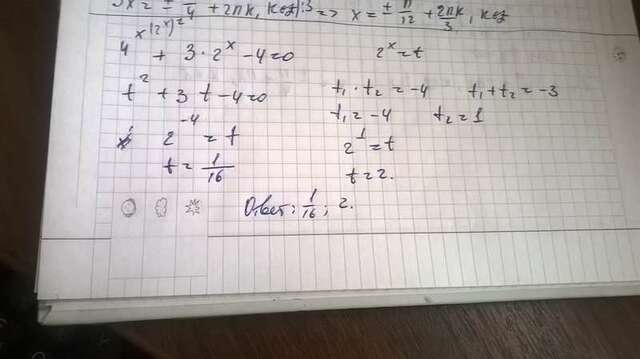 3x = ± π/4 + 2πk, k∈z |:3 => x = ± π/12 + 2πk/3, k∈z
4^x (2^x)^2 + 3·2^x - 4 = 0 2^x = t
t^2 + 3t - 4 = 0 t₁·t₂ = -4 t₁+t₂ = -3
t₁ = -4 t₂ = 1
2^-4 = t 2^1 = t
t = 1/16 t = 2.
Ответ: 1/16; 2.